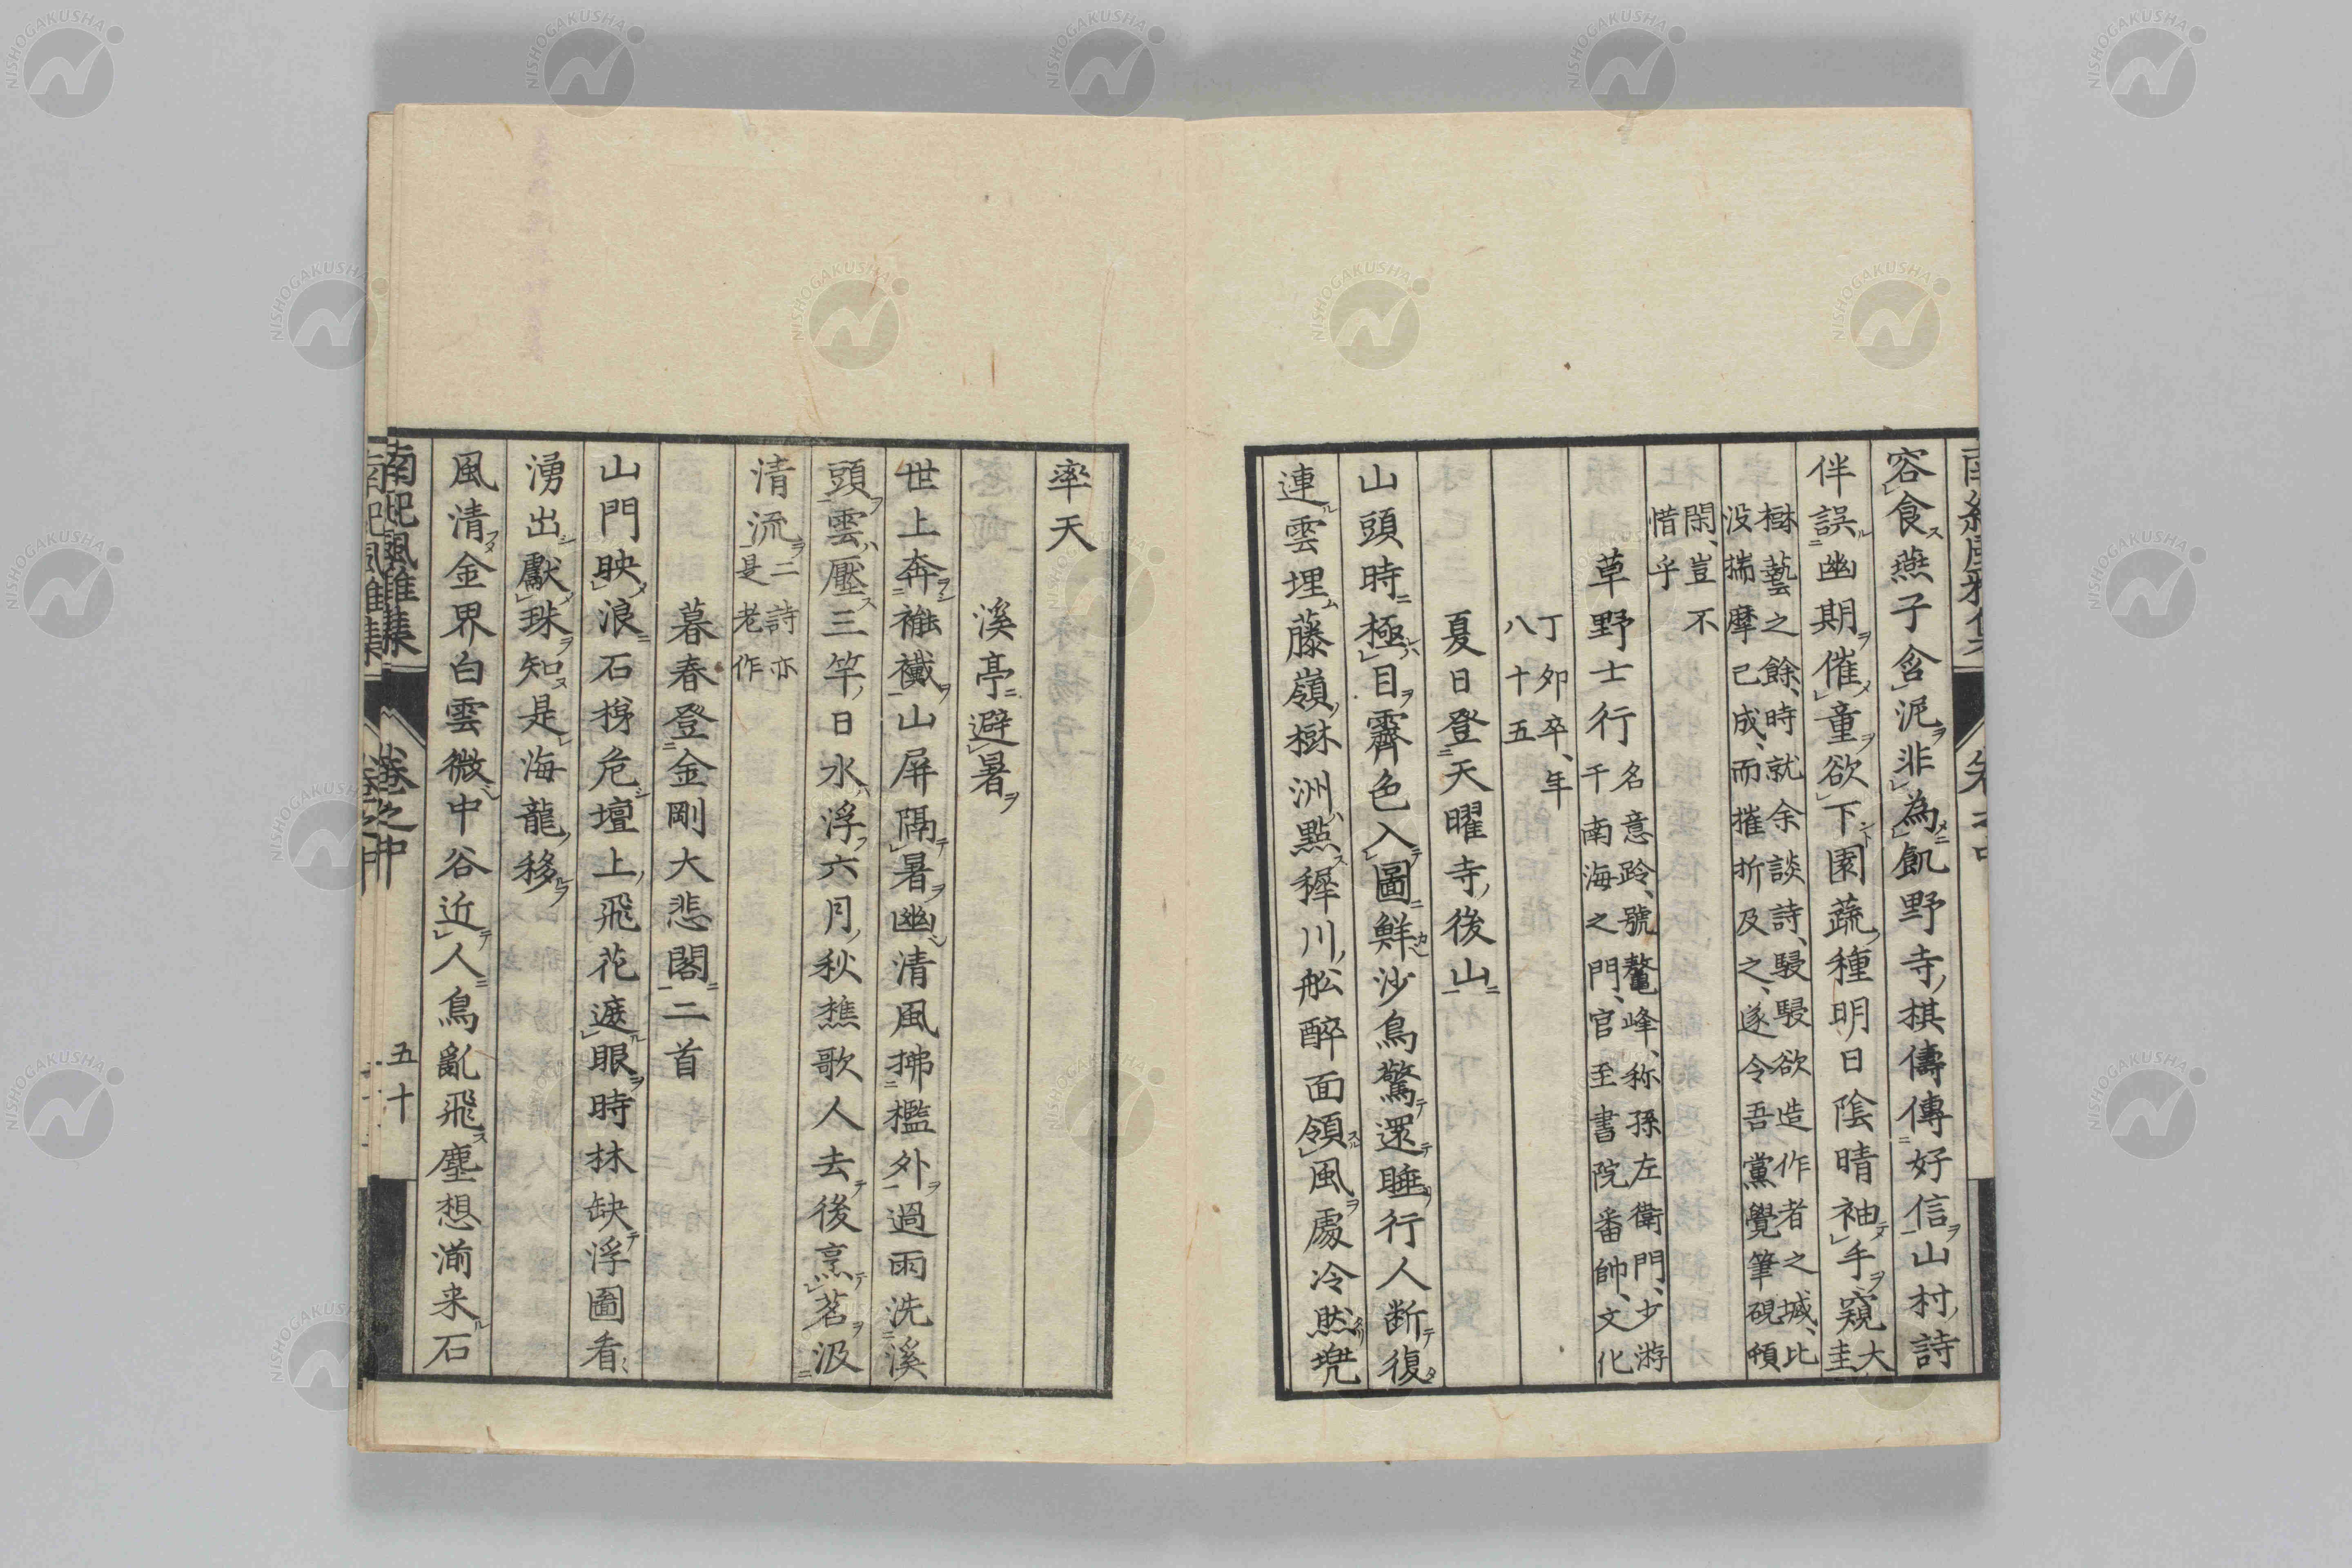 容食燕子含泥非為飢野寺棋儔傳好信山村詩
伴誤幽期催童欲下園蔬種明日陰晴袖手窺大圭
樹藝之餘、時就余談詩、駸駸欲造作者之域、比
没揣摩已成、而摧折及之、遂令吾黨覺筆硯頓
閑、豈不
惜乎
草野士行
名意跉、號鼇峰、称孫左衛門、少游
千南海之門、官至書院番帥、文化
丁卯卒、年
八十五
夏日登天曜寺後山
山頭時極目霽色入圖鮮沙鳥驚還睡行人断復
連雲埋藤嶺樹洲點穉川舩醉面領風處冷然兠
率天
溪亭避暑
世上奔褦襶山屏隔暑幽清風拂檻外過雨洗溪
頭雲壓三竿日水浮六月秋樵歌人去後烹茗汲
清流
二詩亦
是老作
暮春登金剛大悲閣二首
山門映浪石拐危壇上飛花遮眼時林缺浮圖看
湧出獻珠知是海龍移
風清金界白雲微中谷近人鳥亂飛塵想湔来石
南紀風雅集
卷之中
五十